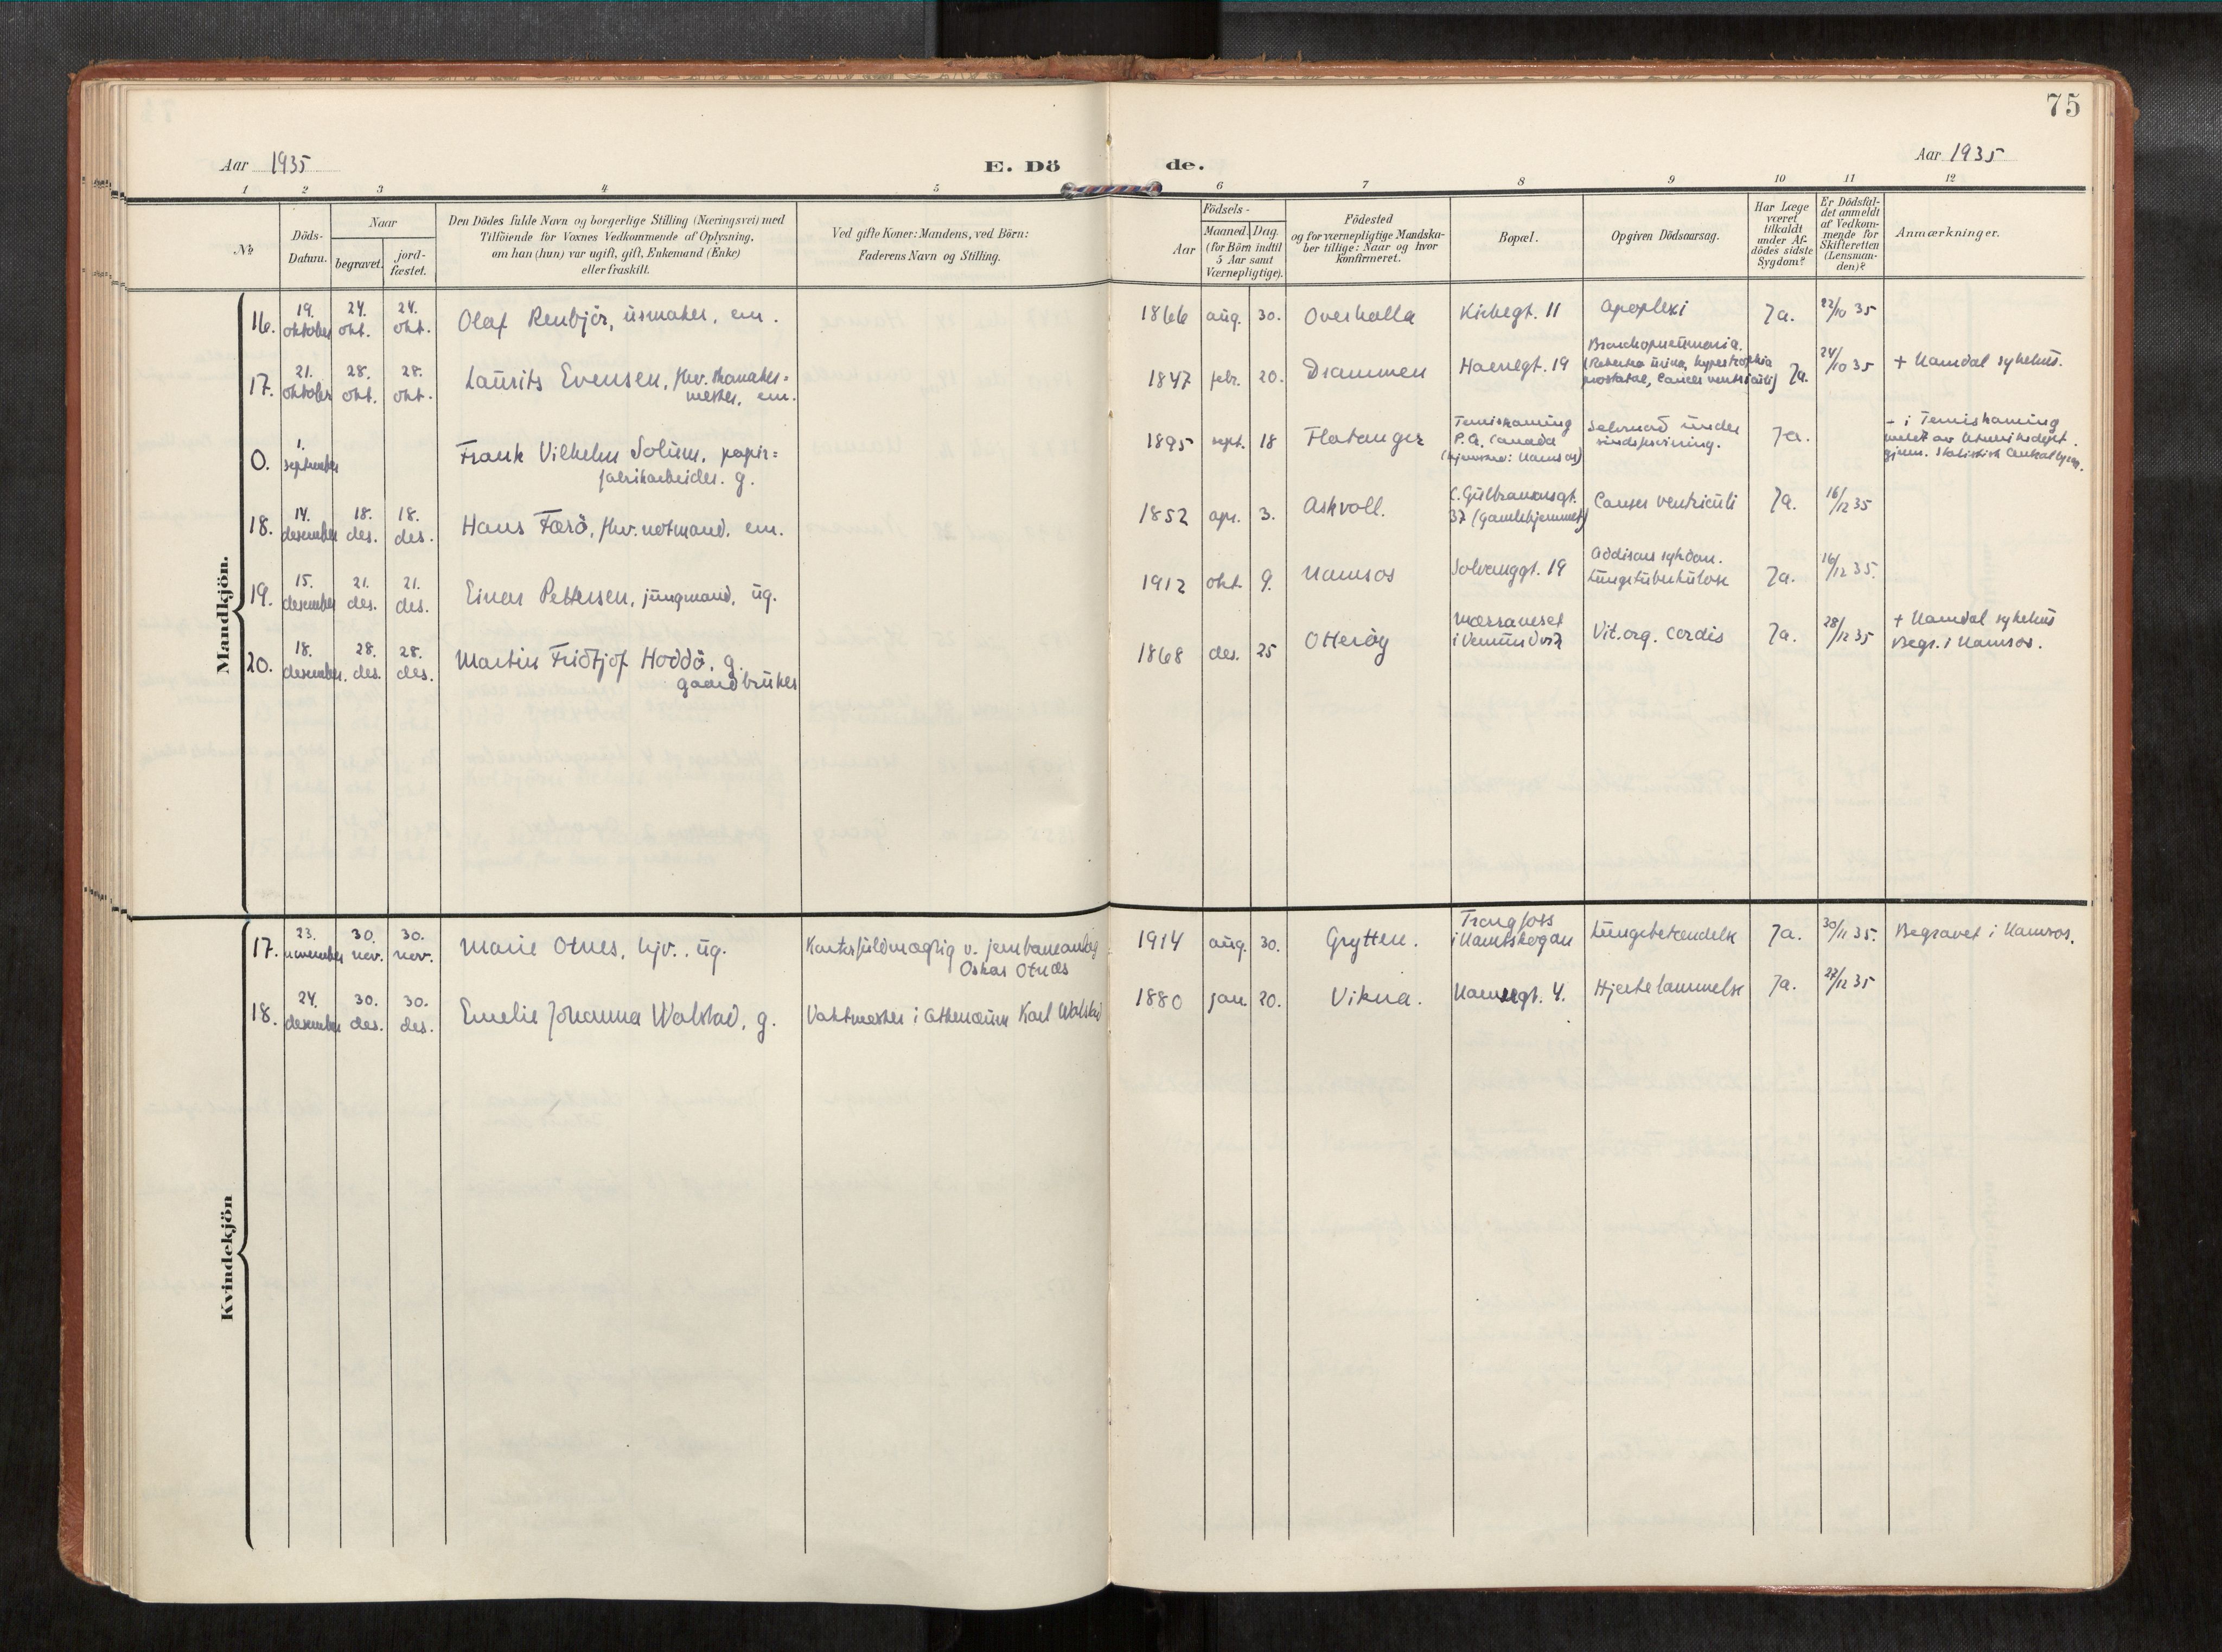 75
Aar 1935
E. Dö
de.
Aar 1935
1 2 3 4 5 6 7 8 9 10 11 12
No
Döds-
Datum.
Naar
begravet.
jord-
fæstet.
Den Dödes fulde Navn og borgerlige Stilling (Næringsvei) med
Tilföiende for Voxnes Vedkommende af Oplysning,
om han (hun) var ugift, gift, Enkemand (Enke)
eller fraskilt.
Ved gifte Koner: Mandens, ved Börn:
Faderens Navn og Stilling.
Födsels-
Aar
Maaned. Dag.
(for Börn indtil
5 Aar samt
Værnepligtige).
Födested
og for værnepligtige Mandska-
ber tillige: Naar og hvor
Konfirmeret.
Bopæl.
Opgiven Dödsaarsag.
Har Læge
været
tilkaldt
under Af-
dödes sidste
Sygdom?
Er Dödsfal-
det anmeldt
af Vedkom-
mende for
Skifteretten
(Lensman-
den)?
Anmærkninger.
Mandkjön.
16. 19. oktober 24. okt. 24. okt. Olaf Renbjör, ürmaker, em. 1866 aug. 30. Overhalla Kirkegt. 11 Apoplexi Ja. 22/10 35
17. 21. oktober 28. okt. 28. okt. Laurits Evensen, fhv.
em. 1847 febr. 20. Drammen Havnegt. 19
Bronchopneumonia.
(Retentio urina, hypertrophia
prostatae, Cancer ventriculi) Ja. 24/10 35 + Namdal sykehus.
0. 1. september Frank Vilhelm Solum, papir=
fabrikarbeider. g. 1895 sept. 18 Flatanger
Temiskaming
P.Q. Canada
(hjemsted: Namsos)
Selvmord under
sindsforvirring. Ja.
- i Temiskaming
melet av Utenriksdept.
gjenn. Statistisk Centralbyrå.
18. 14. desember 18. des. 18. des. Hans Færö, fhv. notmand, em. 1852 apr. 3. Askvoll.
C. Gulbransonsgt.
37 (Gamlehjemmet) Cancer ventriculi Ja. 16/12 35
19. 15. desember 21. des. 21. des. Einar Pettersen, jungmand, ug. 1912 okt. 9. Namsos Solvanggt. 19
Addisons sykdom.
Lungetuberkulose Ja. 16/12 35.
20. 18. desember. 28. des. 28. des. Martin Fridtjof Hoddö, g.
gaardbruker 1868 des. 25 Otteröy
i Vemundvik Vit. org. cordis Ja. 28/12 35
+ Namdal sykehus
Begr. i Namsos.
Kvindekjön
17. 23. november 30. nov. 30. nov. Marie Otnes, hjv., ug.
Kontorfuldmægtig v. jernbaneanlæg
Oskar Otnes 1914 aug. 30. Grytten.
Trongfoss
i Namsskogan Lungebetændelse Ja. 30/11 35. Begravet i Namsos.
18. 24. desember 30. des. 30. des. Emelie Johanna Walstad, g. Vaktmester i Athenæum Karl Walstad 1880 jan. 20. Vikna. Havnegt. 4. Hjertelammelse Ja. 27/12 35